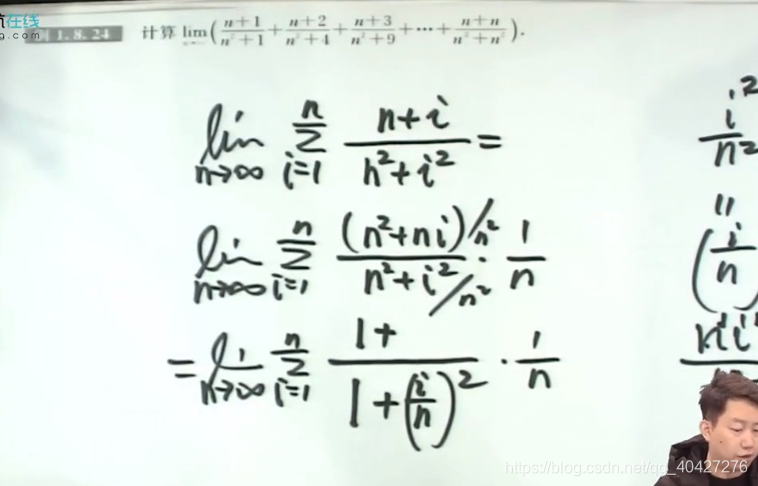 航在线
g.com
例 1.8.24 计算 lim(n+1/n²+1 + n+2/n²+4 + n+3/n²+9 + ⋯ + n+n/n²+n²).
lim n→∞ n Σ i=1 n+i/n²+i² =
lim n→∞ n Σ i=1 (n²+ni)/n² / n²+i²/n² · 1/n
= lim n→∞ n Σ i=1 1+ / 1+(i/n)² · 1/n
i²/n²
||
(i/n
https://blog.csdn.net/qq_40427276